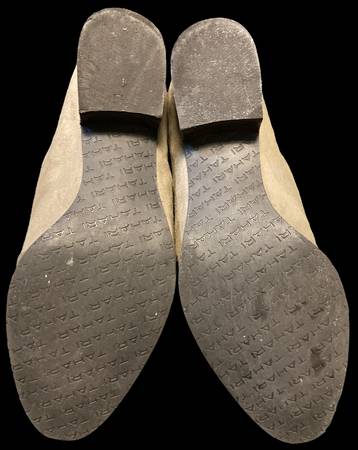 TAHARI TAHARI TAHARI
TAHARI TAHARI TAHARI